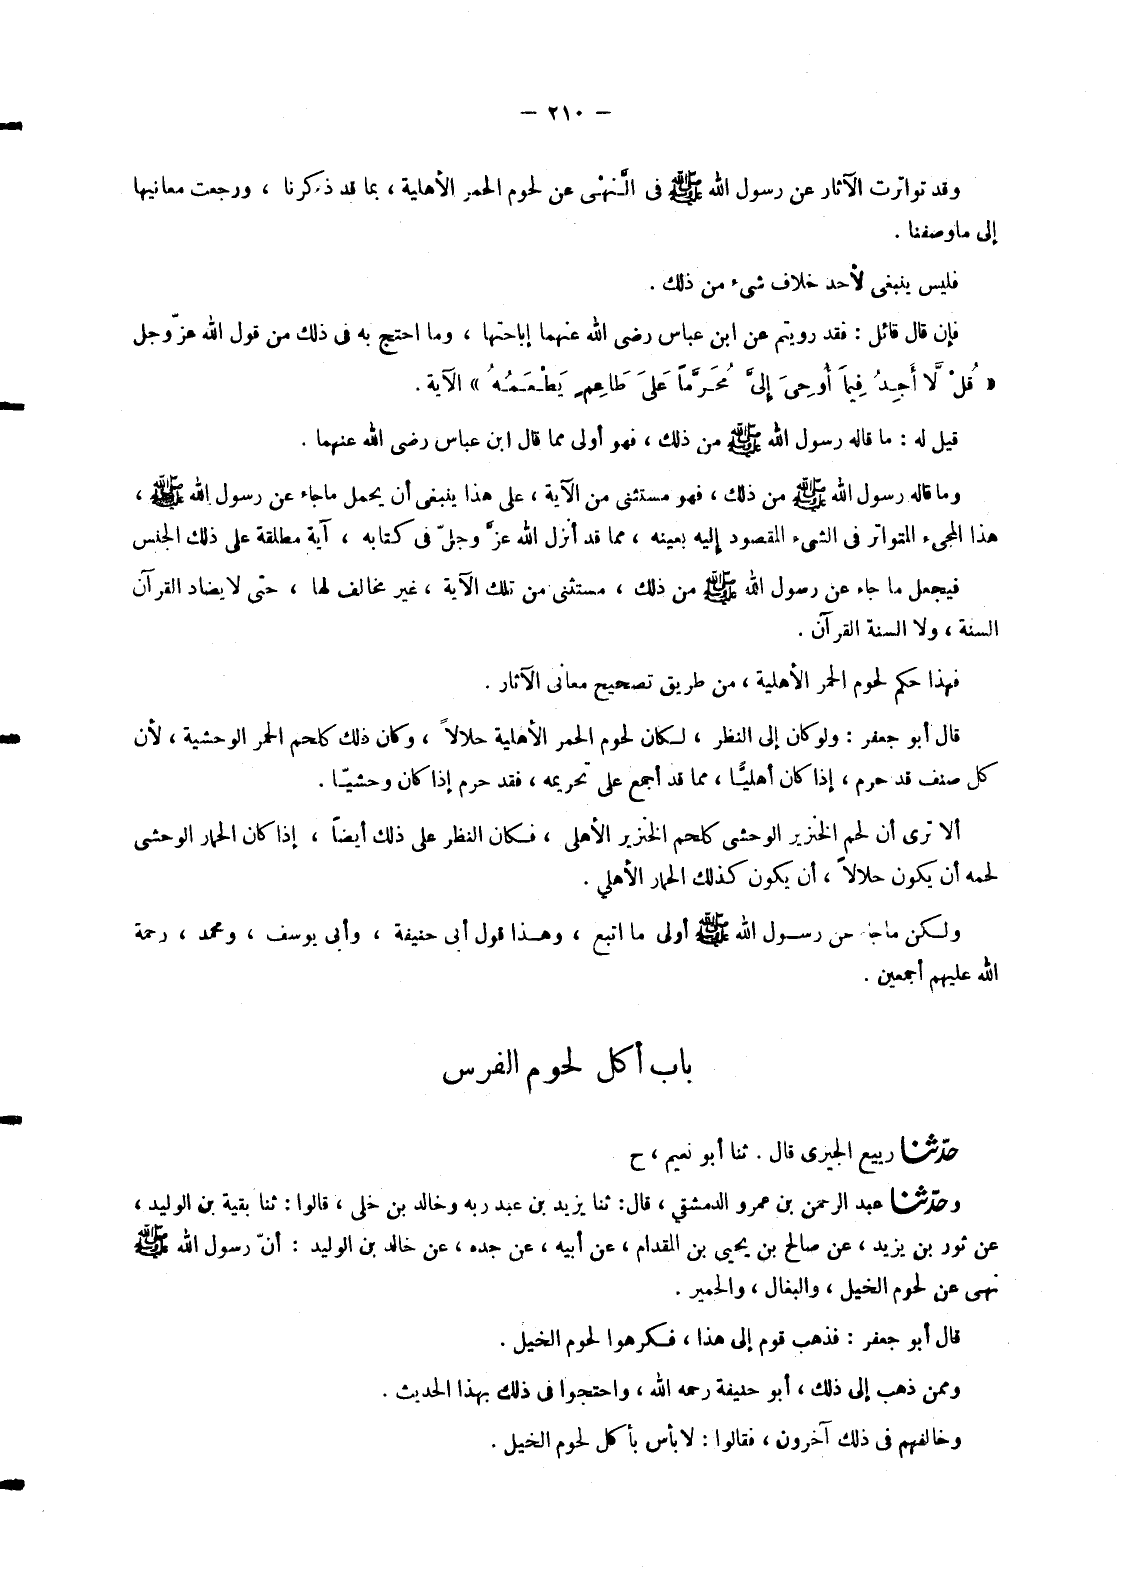 — ٢١٠ —
وقد تواترت الآثار عن رسول الله ﷺ فى النَّهْى عن لحوم الحمر الأهلية ، بما قد ذكرنا ، ورجعت معانيها
إلى ماوصفنا .
فليس ينبغى لأحد خلاف شىء من ذلك .
فإن قال قائل : فقد رويتم عن ابن عباس رضى الله عنهما إباحتها ، وما احتج به فى ذلك من قول الله عزّ وجل
« قُلْ لَّا أَجِدُ فِيمَا أُوحِىَ إِلىَّ مُحَرَّماً عَلىَ طَاعِمٍ يَطْعَمُهُ » الآية .
قيل له : ما قاله رسول الله ﷺ من ذلك ، فهو أولى مما قال ابن عباس رضى الله عنهما .
وما قاله رسول الله ﷺ من ذلك ، فهو مستثنى من الآية ، على هذا ينبغى أن يحمل ماجاء عن رسول الله ﷺ ،
هذا المجىء المتواتر فى الشىء المقصود إليه بعينه ، مما قد أنزل الله عزَّ وجلّ فى كتابه ، آية مطلقة على ذلك الجنس
فيجعل ما جاء عن رسول الله ﷺ من ذلك ، مستثنى من تلك الآية ، غير مخالف لها ، حتى لا يضاد القرآن
السنة ، ولا السنة القرآن .
فهذا حكم لحوم الحمر الأهلية ، من طريق تصحيح معانى الآثار .
قال أبو جعفر : ولو كان إلى النظر ، لكان لحوم الحمر الأهلية حلالاً ، وكان ذلك كلحم الحمر الوحشية ، لأن
كل صنف قد حرم ، إذا كان أهليًّا ، مما قد أجمع على تحريمه ، فقد حرم إذا كان وحشيّا .
ألا ترى أن لحم الخنزير الوحشى كلحم الخنزير الأهلى ، فكان النظر على ذلك أيضاً ، إذا كان الحمار الوحشى
لحمه أن يكون حلالاً ، أن يكون كذلك الحمار الأهلي .
ولكن ماجاء عن رسول الله ﷺ أولى ما اتبع ، وهذا قول أبى حنيفة ، وأبى يوسف ، ومحمد ، رحمة
الله عليهم أجمعين .
باب أكل لحوم الفرس
حدّثنا ربيع الجيزى قال . ثنا أبو نعيم ، ح
وحدّثنا عبد الرحمن بن عمرو الدمشقي ، قال : ثنا يزيد بن عبد ربه وخالد بن خلى ، قالوا : ثنا بقية بن الوليد ،
عن ثور بن يزيد ، عن صالح بن يحيى بن المقدام ، عن أبيه ، عن جده ، عن خالد بن الوليد : أنّ رسول الله ﷺ
نهى عن لحوم الخيل ، والبغال ، والحمير .
قال أبو جعفر : فذهب قوم إلى هذا ، فكرهوا لحوم الخيل .
وممن ذهب إلى ذلك ، أبو حنيفة رحمه الله ، واحتجوا فى ذلك بهذا الحديث .
وخالفهم فى ذلك آخرون ، فقالوا : لا بأس بأكل لحوم الخيل .